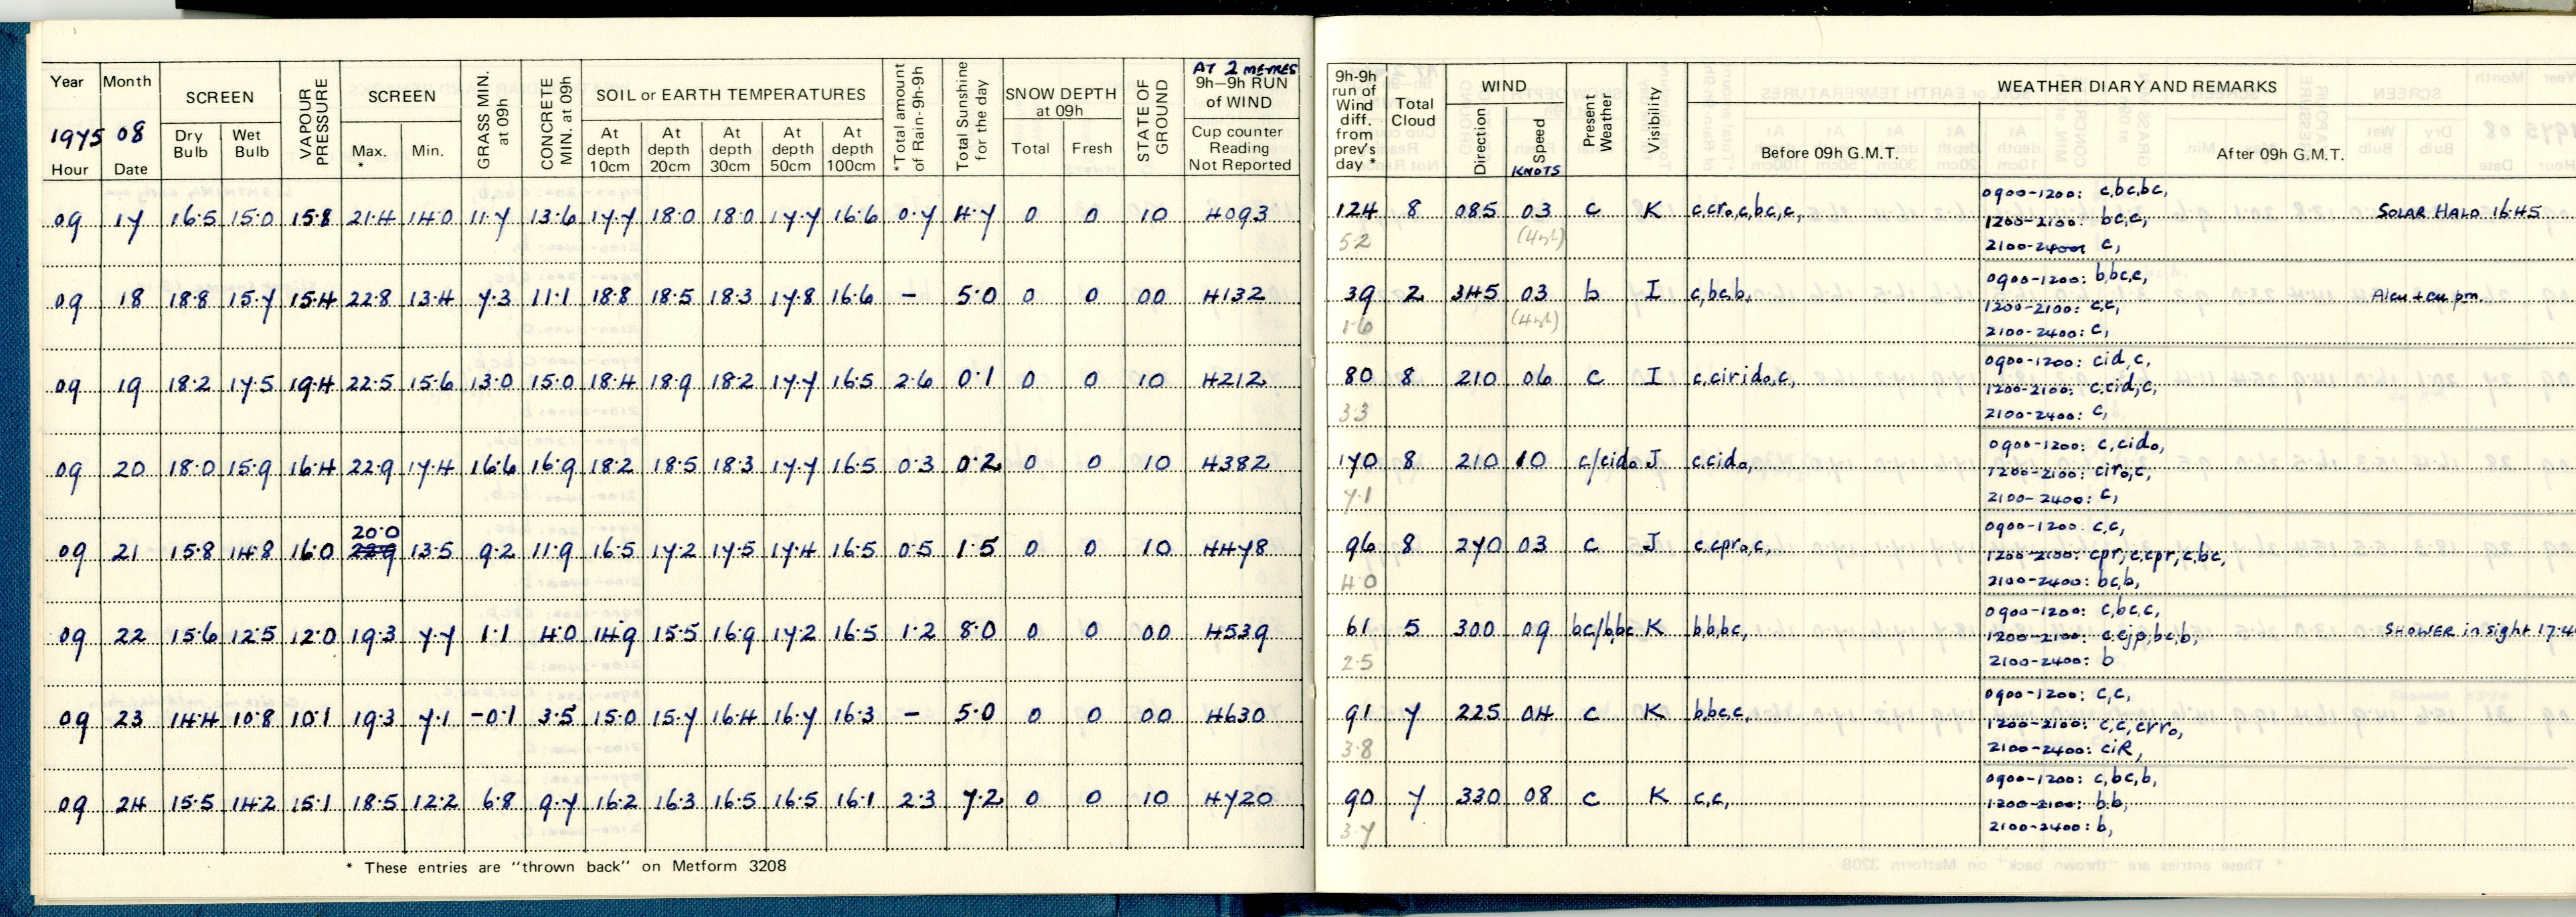 Year Month SCREEN VAPOUR PRESSURE SCREEN GRASS MIN. at 09h CONCRETE MIN. at 09h SOIL or EARTH TEMPERATURES *Total amount of Rain-9h-9h Total Sunshine for the day SNOW DEPTH at 09h STATE OF GROUND AT 2 METRES 9h–9h RUN of WIND
1975 08 Dry Bulb Wet Bulb Max. * Min. At depth 10cm At depth 20cm At depth 30cm At depth 50cm At depth 100cm Total Fresh Cup counter Reading Not Reported
Hour Date
09 17 16.5 15.0 15.8 21.4 14.0 11.7 13.6 17.7 18.0 18.0 17.7 16.6 0.7 4.7 0 0 10 4093
09 18 18.8 15.7 15.4 22.8 13.4 7.3 11.1 18.8 18.5 18.3 17.8 16.6 – 5.0 0 0 00 4132
09 19 18.2 17.5 19.4 22.5 15.6 13.0 15.0 18.4 18.9 18.2 17.7 16.5 2.6 0.1 0 0 10 4212
09 20 18.0 15.9 16.4 22.9 17.4 16.6 16.9 18.2 18.5 18.3 17.7 16.5 0.3 0.2 0 0 10 4382
20.0
09 21 15.8 14.8 16.0 22.9 13.5 9.2 11.9 16.5 17.2 17.5 17.4 16.5 0.5 1.5 0 0 10 4478
09 22 15.6 12.5 12.0 19.3 7.7 1.1 4.0 14.9 15.5 16.9 17.2 16.5 1.2 8.0 0 0 00 4539
09 23 14.4 10.8 10.1 19.3 7.1 -0.1 3.5 15.0 15.7 16.4 16.7 16.3 – 5.0 0 0 00 4630
09 24 15.5 14.2 15.1 18.5 12.2 6.8 9.7 16.2 16.3 16.5 16.5 16.1 2.3 7.2 0 0 10 4720
* These entries are "thrown back" on Metform 3208
9h-9h run of Wind diff. from prev's day * Total Cloud WIND Present Weather Visibility WEATHER DIARY AND REMARKS
Direction Speed KNOTS Before 09h G.M.T. After 09h G.M.T.
0900-1200: c,bc,bc,
124 8 085 03 c K c,cr₀,c,bc,c, 1200-2100: bc,c, SOLAR HALO 16.45
5.2 (4mph) 2100-2400 c,
0900-1200: b,bc,c,
39 2 345 03 b I c,bc,b, 1200-2100: c,c, Alcu + cu pm.
1.6 (4mph) 2100-2400: c,
0900-1200: cid,c,
80 8 210 06 c I c,cirid₀,c, 1200-2100: c,cid,c,
3.3 2100-2400: c,
0900-1200: c,cid₀,
170 8 210 10 c/cid₀ J c,cid₀, 1200-2100: cir₀,c,
7.1 2100-2400: c,
0900-1200: c,c,
96 8 270 03 c J c,cpr₀,c, 1200-2100: cpr,c,cpr,c,bc,
4.0 2100-2400: bc,b,
0900-1200: c,bc,c,
61 5 300 09 bc/b,bc K b,b,bc, 1200-2100: c,cjp,bc,b, SHOWER in sight
2.5 2100-2400: b
0900-1200: c,c,
91 7 225 04 c K b,bc,c, 1200-2100: c,c,crr₀,
3.8 2100-2400: ciR,
0900-1200: c,bc,b,
90 7 330 08 c K c,c, 1200-2100: b,b,
3.7 2100-2400: b,